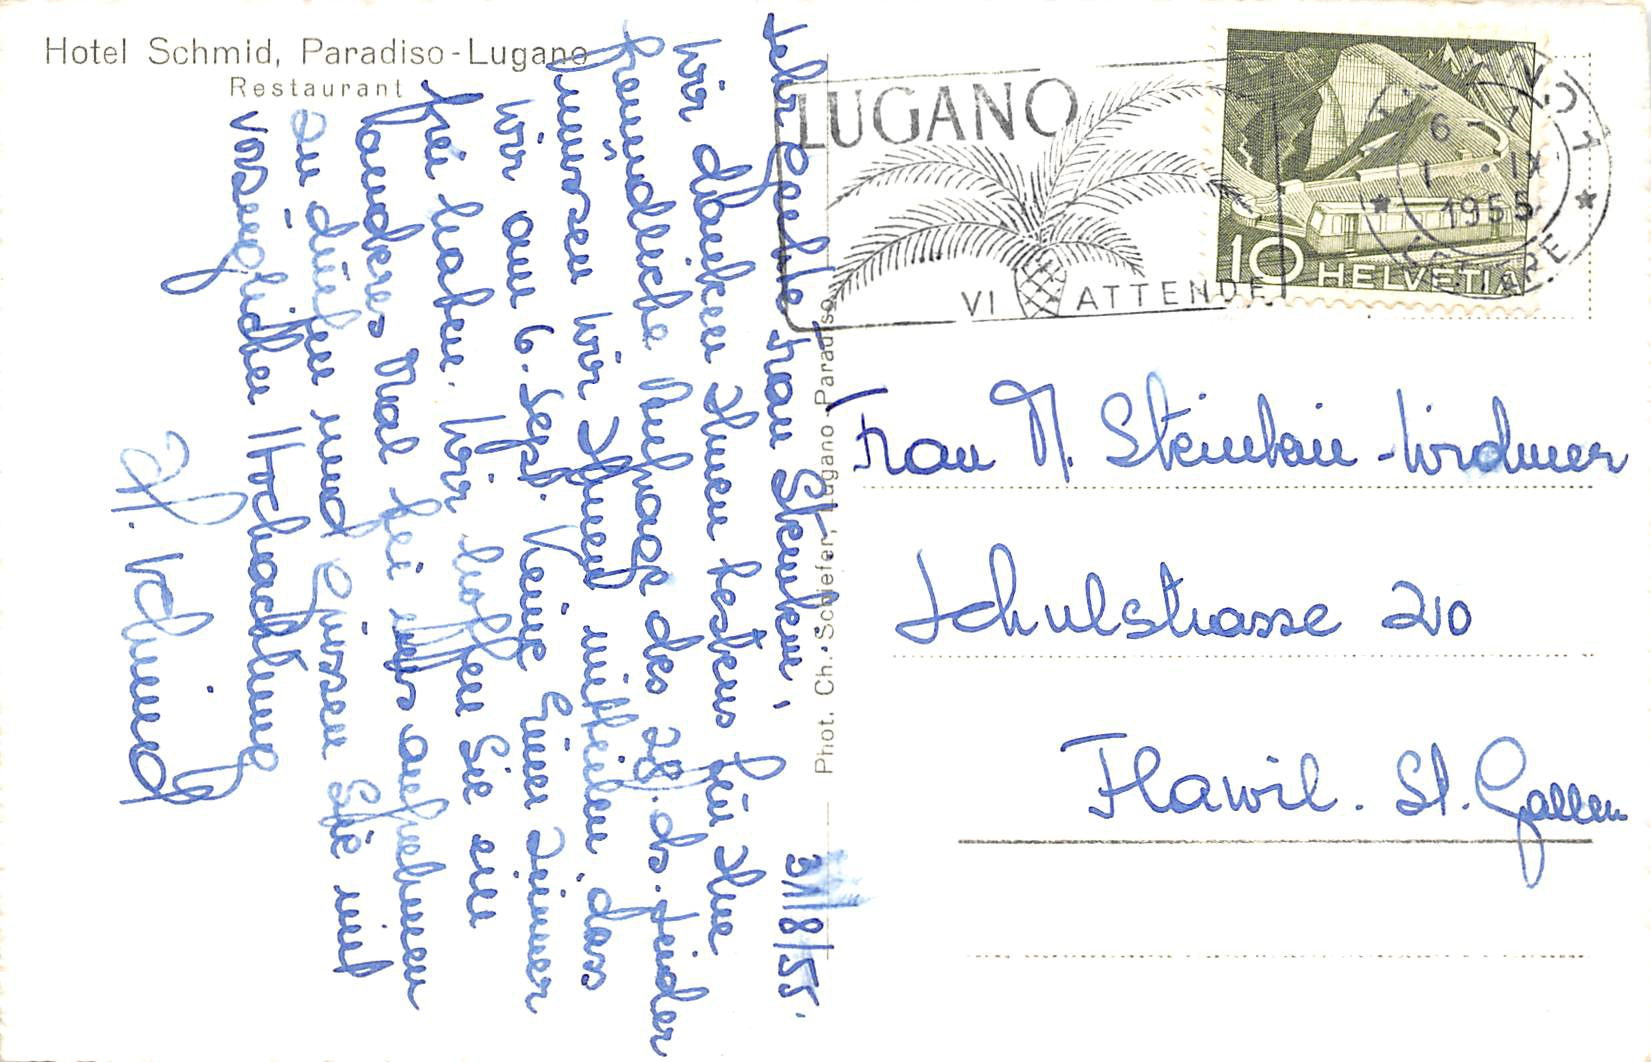 Hotel Schmid, Paradiso-Lugano
Restaurant
31/8/55.
Sehr geehrte Frau Steinlein,
Wir danken Ihnen bestens für Ihre
freundliche Anfrage des 28. ds. Leider
müssen wir Ihnen mitteilen, dass
wir am 6. Sept. keine Einer Zimmer
frei haben. Wir hoffen Sie ein
anderes Mal bei uns aufnehmen
zu dürfen und grüssen Sie mit
vorzüglicher Hochachtung
H. Schmid
Phot. Ch. Schiefer, Lugano-Paradiso
LUGANO
VI ATTENDE
6 - 7
1 . IX
1955
LETTERE
10 HELVETIA
Frau M. Steinlein-Widmer
Schulstrasse 210
Flawil. St. Gallen